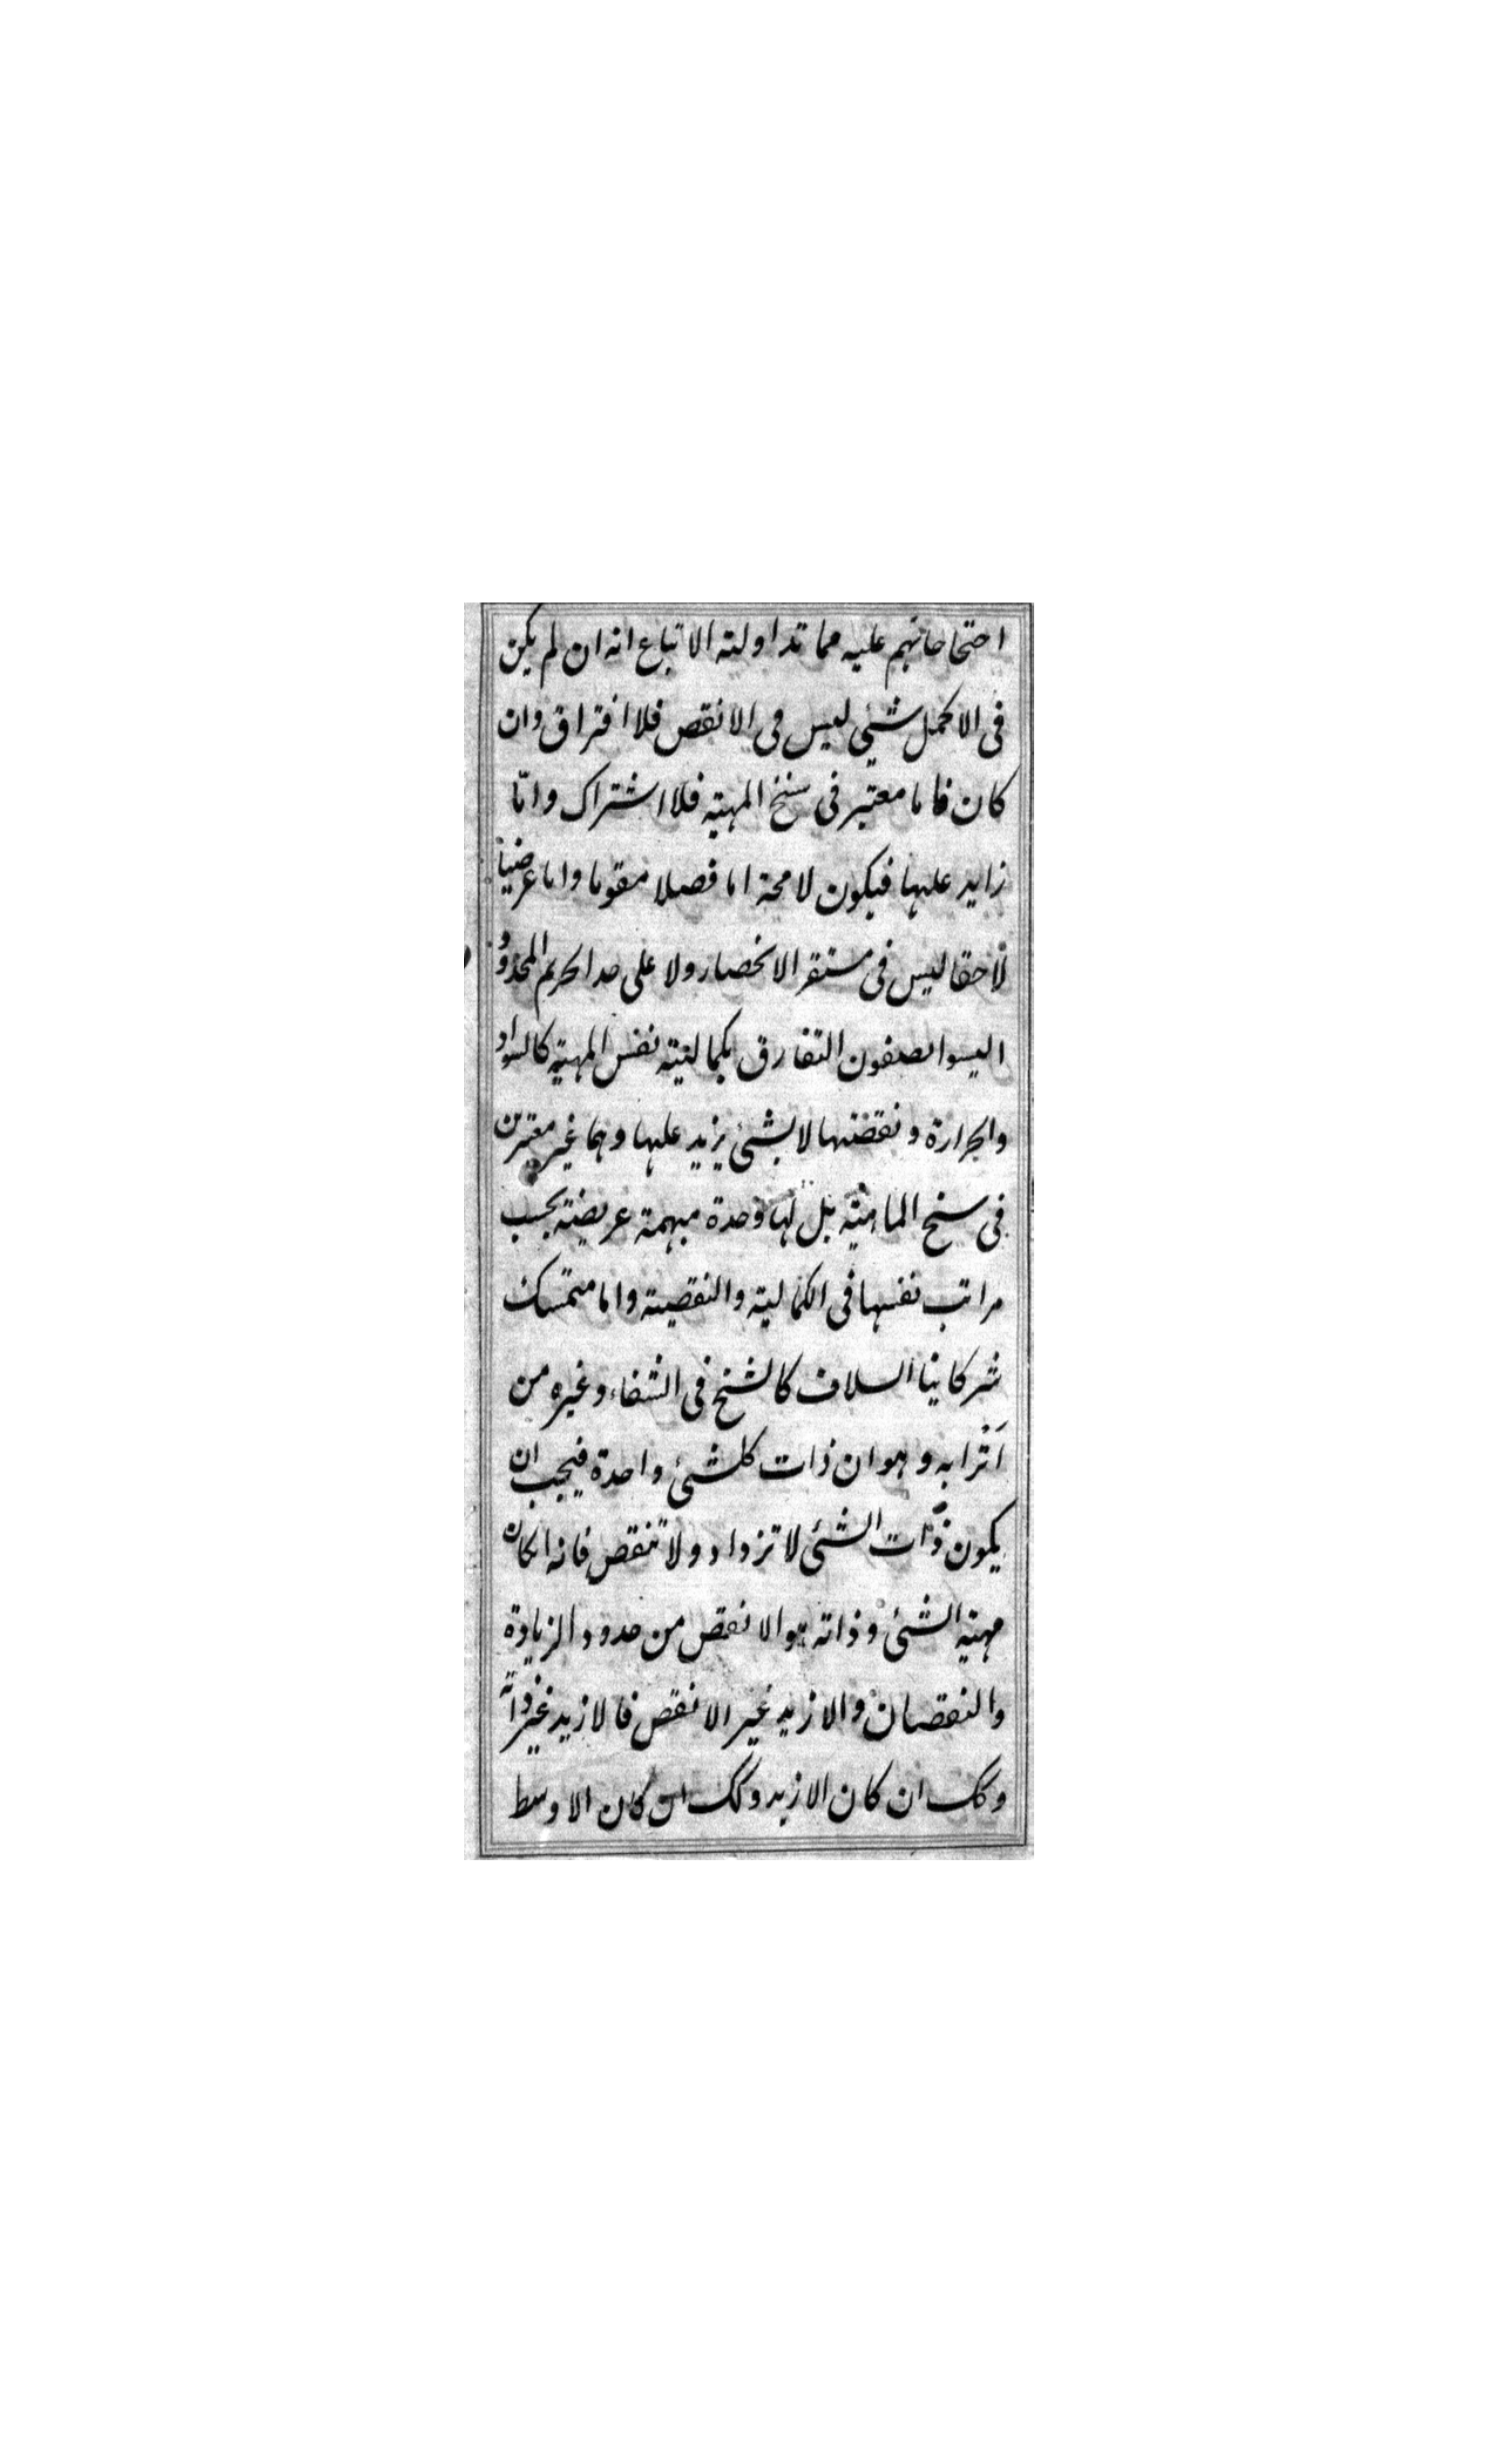 احتجاجاتهم عليه مما تداولته الاتباع انه ان لم يكن
فى الاكمل شيئ ليس فى الانقص فلا افتراق وان
كان فاما معتبر فى سنخ المهيته فلا اشتراك واما
زايد عليها فيكون لا محة اما فصلا مقوما واما عرضيا
لاحقا ليس فى مستقر الانحصار ولا على حد الحريم المحدود
اليسوا يصفون التفارق بكمالية نفس المهية كالسواد
والحرارة ونقصتها لا بشئ يزيد عليها وهما غير معتبرين
فى سنخ الماهية بل لها وحدة مبهمة عريضة بحسب
مراتب نفسها فى الكمالية والنقصية واما متمسك
شركاينا السلاف كالشيخ فى الشفاء وغيره من
اترابه وهو ان ذات كلشئ واحدة فيجب ان
يكون ذات الشئ لا تزداد ولا تنقص فانه ان كان
مهية الشئ وذاته هو الانقص من حدود الزيادة
والنقصان والازيد غير الانقص فالازيد غير ذاته
وكك ان كان الازيد وكك ان كان الاوسط